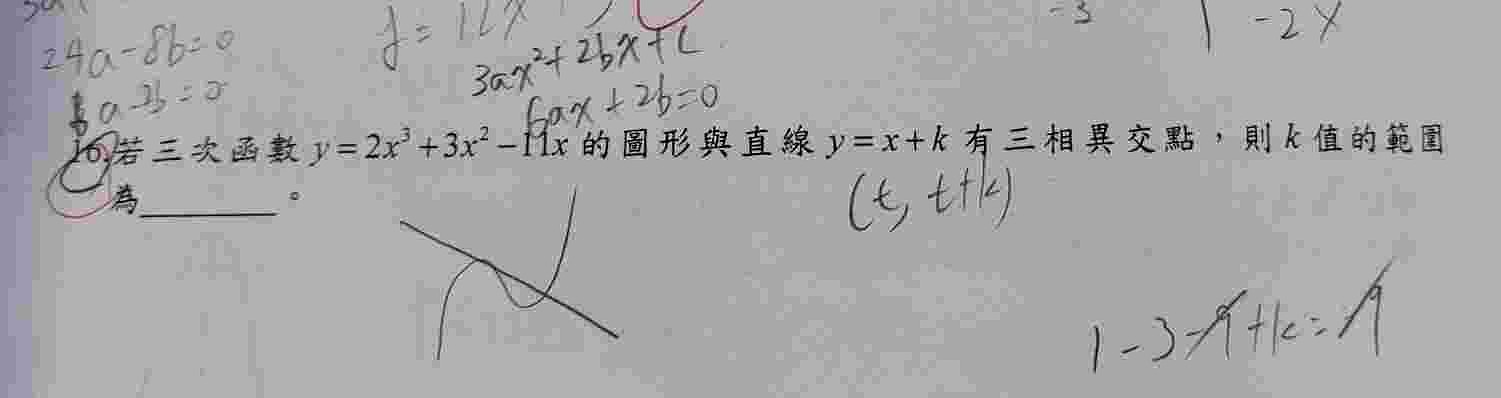 24a-8b=0
y=12x
-3
-2x
3ax²+2bx+c
a-2b=0
6ax+2b=0
16.若三次函數 y=2x³+3x²-11x 的圖形與直線 y=x+k 有三相異交點，則 k 值的範圍
為________。
(t, t+k)
1-3-9+k=-9